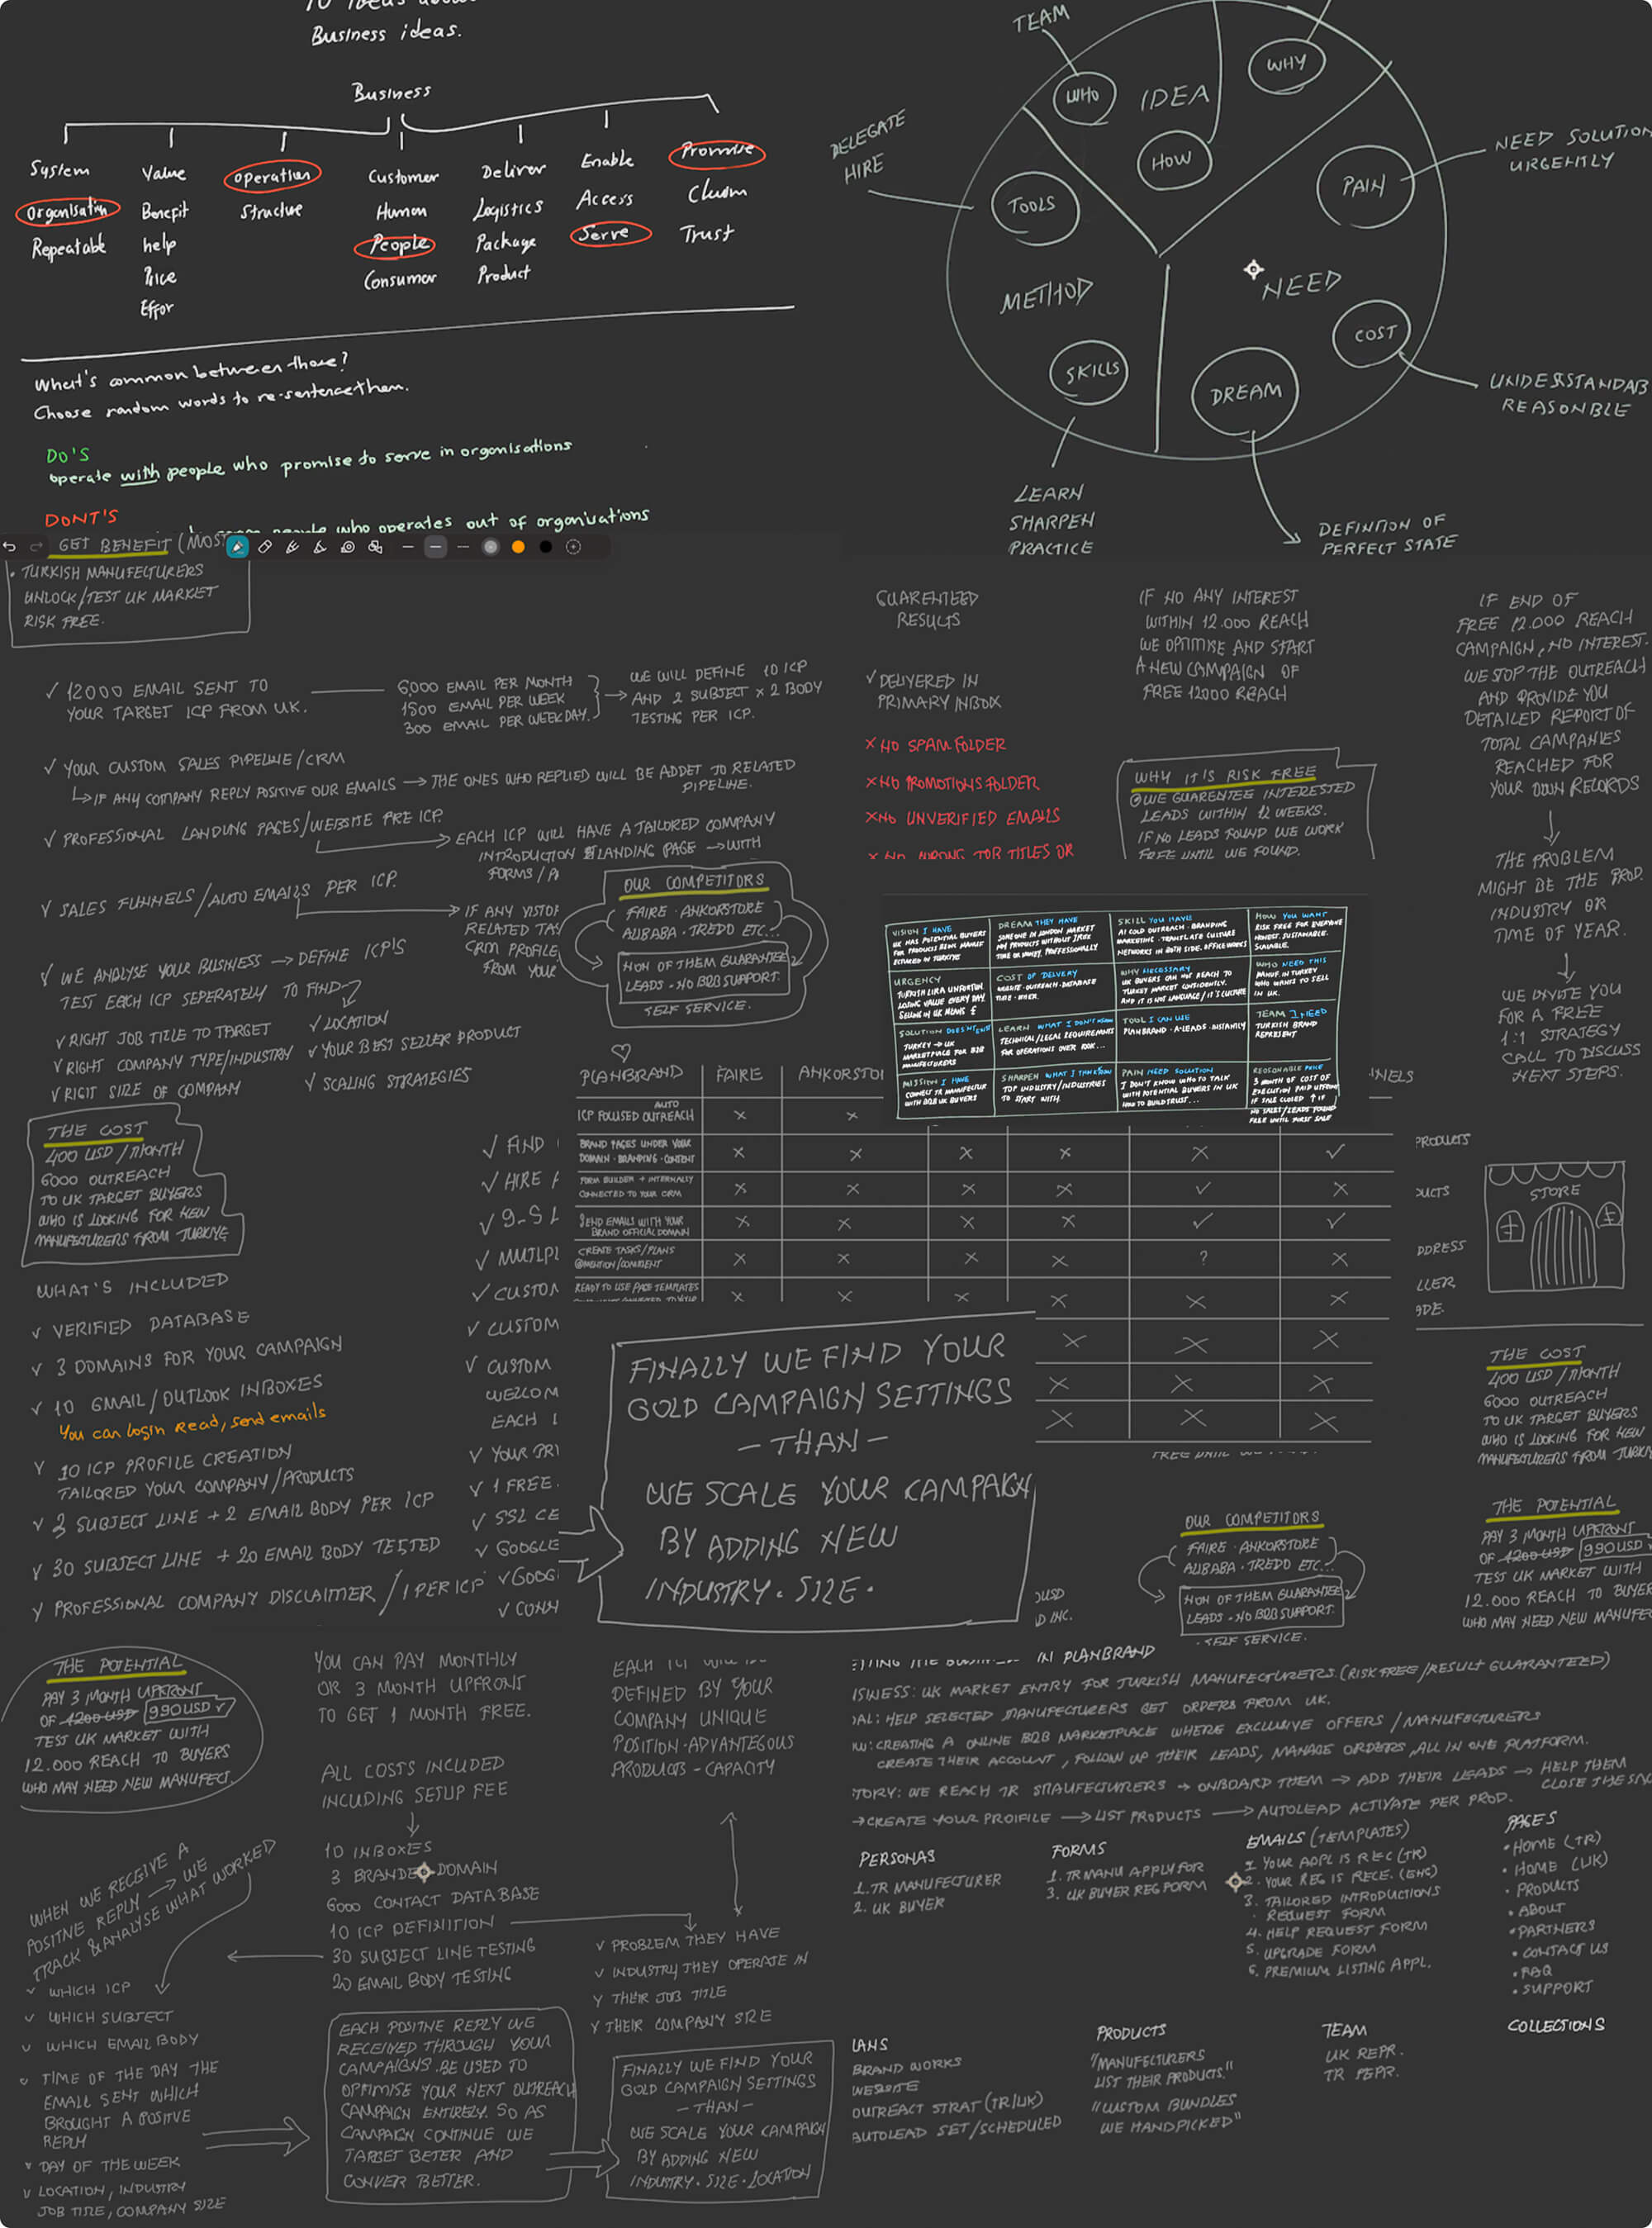 Business ideas.
Business
System
Organisation
Repeatable
Value
Benefit
help
Price
Effor
Operation
Structure
Customer
Human
People
Consumer
Deliver
Logistics
Package
Product
Enable
Access
Serve
Promise
Claim
Trust
What's common between those?
Choose random words to re-sentence them.
DO'S
operate with people who promise to serve in organisations
DONT'S
people who operates out of organisations
TEAM
WHO
IDEA
WHY
HOW
DELEGATE
HIRE
TOOLS
METHOD
SKILLS
LEARN
SHARPEN
PRACTICE
NEED SOLUTION
URGENTLY
PAIN
NEED
COST
UNDERSTANDAB
REASONBLE
DREAM
DEFINITION OF
PERFECT STATE
GET BENEFIT (MOST
• TURKISH MANUFECTURERS
UNLOCK/TEST UK MARKET
RISK FREE.
✓ 12000 EMAIL SENT TO
YOUR TARGET ICP FROM UK.
6,000 EMAIL PER MONTH
1500 EMAIL PER WEEK
300 EMAIL PER WEEKDAY.
WE WILL DEFINE 10 ICP
AND 2 SUBJECT x 2 BODY
TESTING PER ICP.
✓ YOUR CUSTOM SALES PIPELINE/CRM
↳ IF ANY COMPANY REPLY POSITIVE OUR EMAILS → THE ONES WHO REPLIED WILL BE ADDET TO RELATED
PIPELINE.
✓ PROFESSIONAL LANDING PAGES/WEBSITE PRE ICP.
→ EACH ICP WILL HAVE A TAILORED COMPANY
INTRODUCTION LANDING PAGE → WITH
FORMS /
✓ SALES FUNNELS/AUTO EMAILS PER ICP.
→ IF ANY VISTOR
RELATED TAS
CRM PROFILE
FROM YOUR
✓ WE ANALYSE YOUR BUSINESS → DEFINE ICP'S
TEST EACH ICP SEPERATELY TO FIND
✓ RIGHT JOB TITLE TO TARGET
✓ RIGHT COMPANY TYPE/INDUSTRY
✓ RIGIT SIZE OF COMPANY
✓ LOCATION
✓ YOUR BEST SELLER PRODUCT
✓ SCALING STRATEGIES
GUARENTEED
RESULTS
✓ DELIVERED IN
PRIMARY INBOX
× NO SPAM FOLDER
× NO PROMOTIONS FOLDER
× NO UNVERIFIED EMAILS
× NO WRONG JOB TITLES OR
IF NO ANY INTEREST
WITHIN 12.000 REACH
WE OPTIMISE AND START
A NEW CAMPAIGN OF
FREE 12000 REACH
WHY IT'S RISK FREE
WE GUARENTEE INTERESTED
LEADS WITHIN 12 WEEKS.
IF NO LEADS FOUND WE WORK
FREE UNTIL WE FOUND.
IF END OF
FREE 12.000 REACH
CAMPAIGN, NO INTEREST.
WE STOP THE OUTREACH
AND PROVIDE YOU
DETAILED REPORT OF
TOTAL CAMPANIES
REACHED FOR
YOUR OWN RECORDS
THE PROBLEM
MIGHT BE THE PROD.
INDUSTRY OR
TIME OF YEAR.
WE INVITE YOU
FOR A FREE
1:1 STRATEGY
CALL TO DISCUSS
NEXT STEPS.
OUR COMPETITORS
FAIRE · ANKORSTORE
ALIBABA · TREDO ETC...
NON OF THEM GUARANTEE
LEADS - NO B2B SUPPORT.
SELF SERVICE.
VISION I HAVE
UK HAS POTENTIAL BUYERS
FOR PRODUCTS BEING MANUF
ECTURED IN TURKIYE
DREAM THEY HAVE
SOMEONE IN LONDON MARKET
MY PRODUCTS WITHOUT
TIME OR MONEY, PROFESSIONALLY
SKILL YOU HAVE
AI COLD OUTREACH - BRANDING
MARKETING - TRANSLATE CULTURE
NETWORKS IN BOTH SIDE. OFFICE WORKS
HOW YOU WANT
RISK FREE FOR EVERYONE
HONEST. SUSTAINABLE.
SCALABLE.
URGENCY
TURKISH LIRA UNFORTUN
LOSING VALUE EVERY DAY
SELLING IN UK MEANS £
COST OF DELIVERY
WEBSITE - OUTREACH - DATABASE
TIME - OTHER.
WHY NECESSARY
UK BUYERS CAN NOT REACH TO
TURKEY MARKET CONFIDENTLY.
AND IT IS NOT LANGUAGE / IT'S CULTURE
WHO NEED THIS
MANUF. IN TURKEY
WHO WANTS TO SELL
IN UK.
SOLUTION DOESN'T
TURKEY → UK
MARKETPLACE FOR B2B
MANUFECTURERS
LEARN WHAT I DON'T KNOW
TECHNICAL/LEGAL REQUIREMENTS
FOR OPERATIONS OVER 100K...
TOOL I CAN USE
PLANBRAND - A-LEADS - INSTANTLY
TEAM I NEED
TURKISH BRAND
REPRESENT
MISSION I HAVE
CONNECT TR MANUFECTUR
WITH B2B UK BUYERS
SHARPEN WHAT I THINK
TOP INDUSTRY/INDUSTRIES
TO START WITH.
PAIN NEED SOLUTION
I DON'T KNOW WHO TO TALK
WITH POTENTIAL BUYERS IN UK
HOW TO BUILD TRUST...
REASONABLE PRICE
3 MONTH OF COST OF
EXECUTION PAID UPFRONT
IF SALE CLOSED ↑ IF
NO SALES/LEADS FOUND
FREE UNTIL FIRST SALE
PLANBRAND
FAIRE
ANKORSTO
NNELS
AUTO
ICP FOCUSED OUTREACH
BRAND PAGES UNDER YOUR
DOMAIN - BRANDING - CONTENT
FORM BUILDER + INTERNALLY
CONNECTED TO YOUR CRM
SEND EMAILS WITH YOUR
BRAND OFFICIAL DOMAIN
CREATE TASKS/PLANS
@MENTION/COMMENT
READY TO USE PAGE TEMPLATES
THE COST
400 USD / MONTH
6000 OUTREACH
TO UK TARGET BUYERS
WHO IS LOOKING FOR NEW
MANUFECTURERS FROM TURKIYE
WHAT'S INCLUDED
✓ VERIFIED DATABASE
✓ 3 DOMAINS FOR YOUR CAMPAIGN
✓ 10 GMAIL/OUTLOOK INBOXES
You can login Read, send emails
✓ 10 ICP PROFILE CREATION
TAILORED YOUR COMPANY/PRODUCTS
✓ 3 SUBJECT LINE + 2 EMAIL BODY PER ICP
✓ 30 SUBJECT LINE + 20 EMAIL BODY TESTED
✓ PROFESSIONAL COMPANY DISCLAIMER / 1 PER ICP
✓ FIND
✓ HIRE
✓ 9-5
✓ MULTIPL
✓ CUSTOM
✓ CUSTOM
✓ CUSTOM
WELCOM
EACH
✓ YOUR PRI
✓ 1 FREE
✓ SSL CE
✓ GOOGLE
✓ GOOG
✓ CONN
FINALLY WE FIND YOUR
GOLD CAMPAIGN SETTINGS
- THAN -
WE SCALE YOUR CAMPAIGN
BY ADDING NEW
INDUSTRY · SIZE ·
PRODUCTS
DUCTS
DDRESS
LLER
ADE.
STORE
THE COST
400 USD / MONTH
6000 OUTREACH
TO UK TARGET BUYERS
WHO IS LOOKING FOR NEW
MANUFECTURERS FROM TURKIY
OUR COMPETITORS
FAIRE · ANKORSTORE
ALIBABA · TREDO ETC...
NON OF THEM GUARANTEE
LEADS - NO B2B SUPPORT.
- SELF SERVICE.
OUSD
D INC.
THE POTENTIAL
PAY 3 MONTH UPFRONT
OF 1200 USD 990 USD
TEST UK MARKET WITH
12.000 REACH TO BUYER
WHO MAY NEED NEW MANUFEC
THE POTENTIAL
PAY 3 MONTH UPFRONT
OF 1200 USD 990 USD ✓
TEST UK MARKET WITH
12.000 REACH TO BUYERS
WHO MAY NEED NEW MANUFECT.
YOU CAN PAY MONTHLY
OR 3 MONTH UPFRONS
TO GET 1 MONTH FREE.
ALL COSTS INCLUDED
INCUDING SETUP FEE
10 INBOXES
3 BRANDED DOMAIN
6000 CONTACT DATABASE
10 ICP DEFINITION
30 SUBJECT LINE TESTING
20 EMAIL BODY TESTING
EACH ICP WILL BE
DEFINED BY YOUR
COMPANY UNIQUE
POSITION-ADVANTEGOUS
PRODUCTS - CAPACITY
✓ PROBLEM THEY HAVE
✓ INDUSTRY THEY OPERATE IN
✓ THEIR JOB TITLE
✓ THEIR COMPANY SIZE
WHEN WE RECEIVE A
POSITIVE REPLY → WE
TRACK & ANALYSE WHAT WORKED
✓ WHICH ICP
✓ WHICH SUBJECT
✓ WHICH EMAIL BODY
✓ TIME OF THE DAY THE
EMAIL SENT WHICH
BROUGHT A POSITIVE
REPLY
✓ DAY OF THE WEEK
✓ LOCATION, INDUSTRY
JOB TITLE, COMPANY SIZE
EACH POSITIVE REPLY WE
RECEIVED THROUGH YOUR
CAMPAIGNS. BE USED TO
OPTIMISE YOUR NEXT OUTREACH
CAMPAIGN ENTIRELY. SO AS
CAMPAIGN CONTINUE WE
TARGET BETER AND
CONVER BETTER.
FINALLY WE FIND YOUR
GOLD CAMPAIGN SETTINGS
- THAN -
WE SCALE YOUR CAMPAIGN
BY ADDING NEW
INDUSTRY · SIZE · LOCATION
IN PLANBRAND
ISINESS: UK MARKET ENTRY FOR TURKISH MANUFECTURERS. (RISK FREE / RESULT GUARANTEED)
AL: HELP SELECTED MANUFECTURERS GET ORDERS FROM UK.
W: CREATING A ONLINE B2B MARKETPLACE WHERE EXCLUSIVE OFFERS / MANUFECTURERS
CREATE THEIR ACCOUNT, FOLLOW UP THEIR LEADS, MANAGE ORDERS, ALL IN ONE PLATFORM.
TORY: WE REACH TR MAUFECTURERS → ONBOARD THEM → ADD THEIR LEADS → HELP THEM
CLOSE THE SAL
→ CREATE YOUR PROIFILE → LIST PRODUCTS → AUTOLEAD ACTIVATE PER PROD.
PERSONAS
1. TR MANUFACTURER
2. UK BUYER
FORMS
1. TR MANU APPLY FOR
3. UK BUYER REG FORM
EMAILS (TEMPLATES)
1. YOUR APPL IS REC (TR)
2. YOUR REG IS RECE. (ENG)
3. TAILORED INTRODUCTIONS
· REQUEST FORM
4. HELP REQUEST FORM
5. UPGRADE FORM
6. PREMIUM LISTING APPL.
PAGES
• HOME (TR)
• HOME (UK)
• PRODUCTS
• ABOUT
• PARTNERS
• CONTACT US
• FAQ
• SUPPORT
LANS
BRAND WORKS
WEBSITE
OUTREACT STRAT (TR/UK)
AUTOLEAD SET/SCHEDULED
PRODUCTS
"MANUFECTURERS
LIST THEIR PRODUCTS."
"CUSTOM BUNDLES
WE HANDPICKED"
TEAM
UK REPR.
TR REPR.
COLLECTIONS